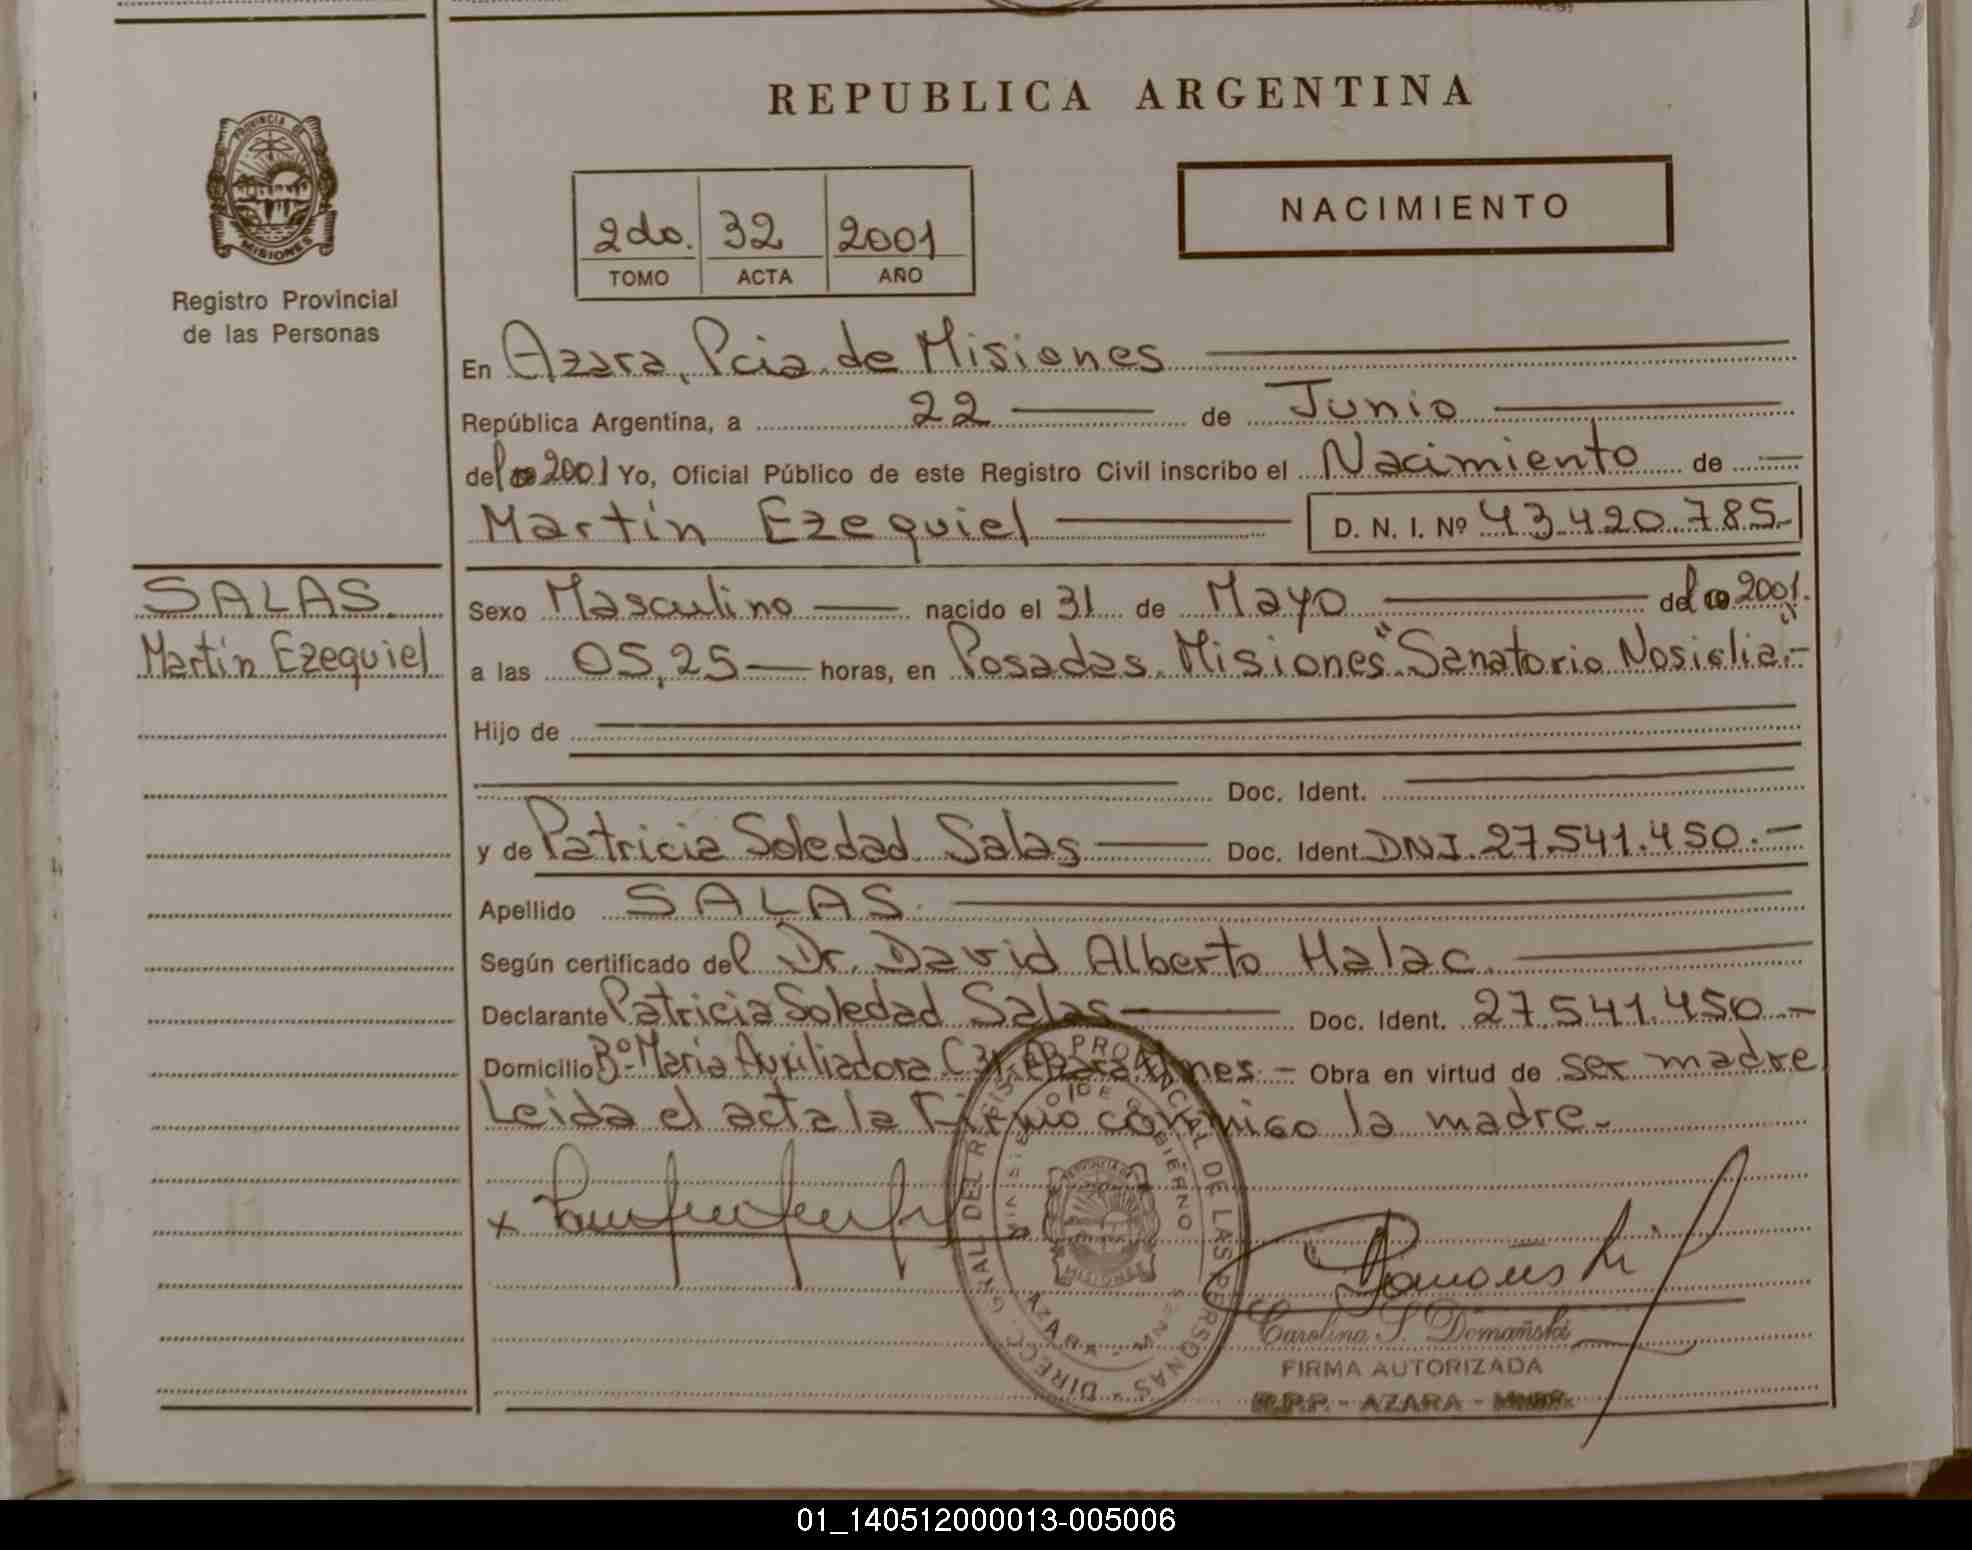 REPUBLICA ARGENTINA
PROVINCIA DE
MISIONES
Registro Provincial
de las Personas
2do. 32 2001
TOMO ACTA AÑO
NACIMIENTO
En Azara, Pcia de Misiones
República Argentina, a 22 de Junio
del 2001 Yo, Oficial Público de este Registro Civil inscribo el Nacimiento de
Martín Ezequiel D. N. I. Nº 43.420.785.-
SALAS
Martín Ezequiel
Sexo Masculino nacido el 31 de Mayo del 2001.
a las 05,25 horas, en Posadas. Misiones "Sanatorio Nosiglia".-
Hijo de
Doc. Ident.
y de Patricia Soledad Salas Doc. Ident. DNI. 27.541.450.-
Apellido SALAS.
Según certificado del Dr. David Alberto Halac.
Declarante Patricia Soledad Salas Doc. Ident. 27.541.450.-
Domicilio Bº María Auxiliadora Obra en virtud de ser madre
Leida el acta la Firmo conmigo la madre.-
DIREC. GRAL. DEL REGISTRO PROVINCIAL DE LAS PERSONAS
MINISTERIO DE GOBIERNO
AZARA
MISIONES
Carolina S. Domański
FIRMA AUTORIZADA
R.P.P. - AZARA -
01_140512000013-005006